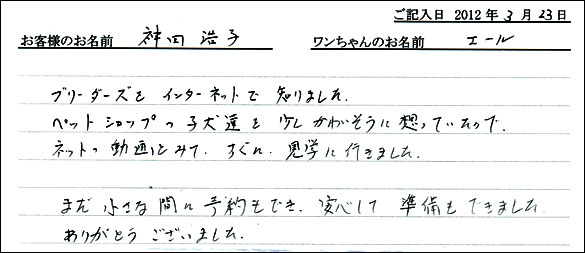 ご記入日 2012年3月23日
お客様のお名前 神田 浩子 ワンちゃんのお名前 エール
ブリーダーズを インターネットで 知りました.
ペットショップの子犬達を 少しかわいそうに想っていたので.
ネットの動画をみて. すぐに. 見学に行きました.
まだ 小さな間に予約もでき. 安心して 準備もできました.
ありがとう ございました.